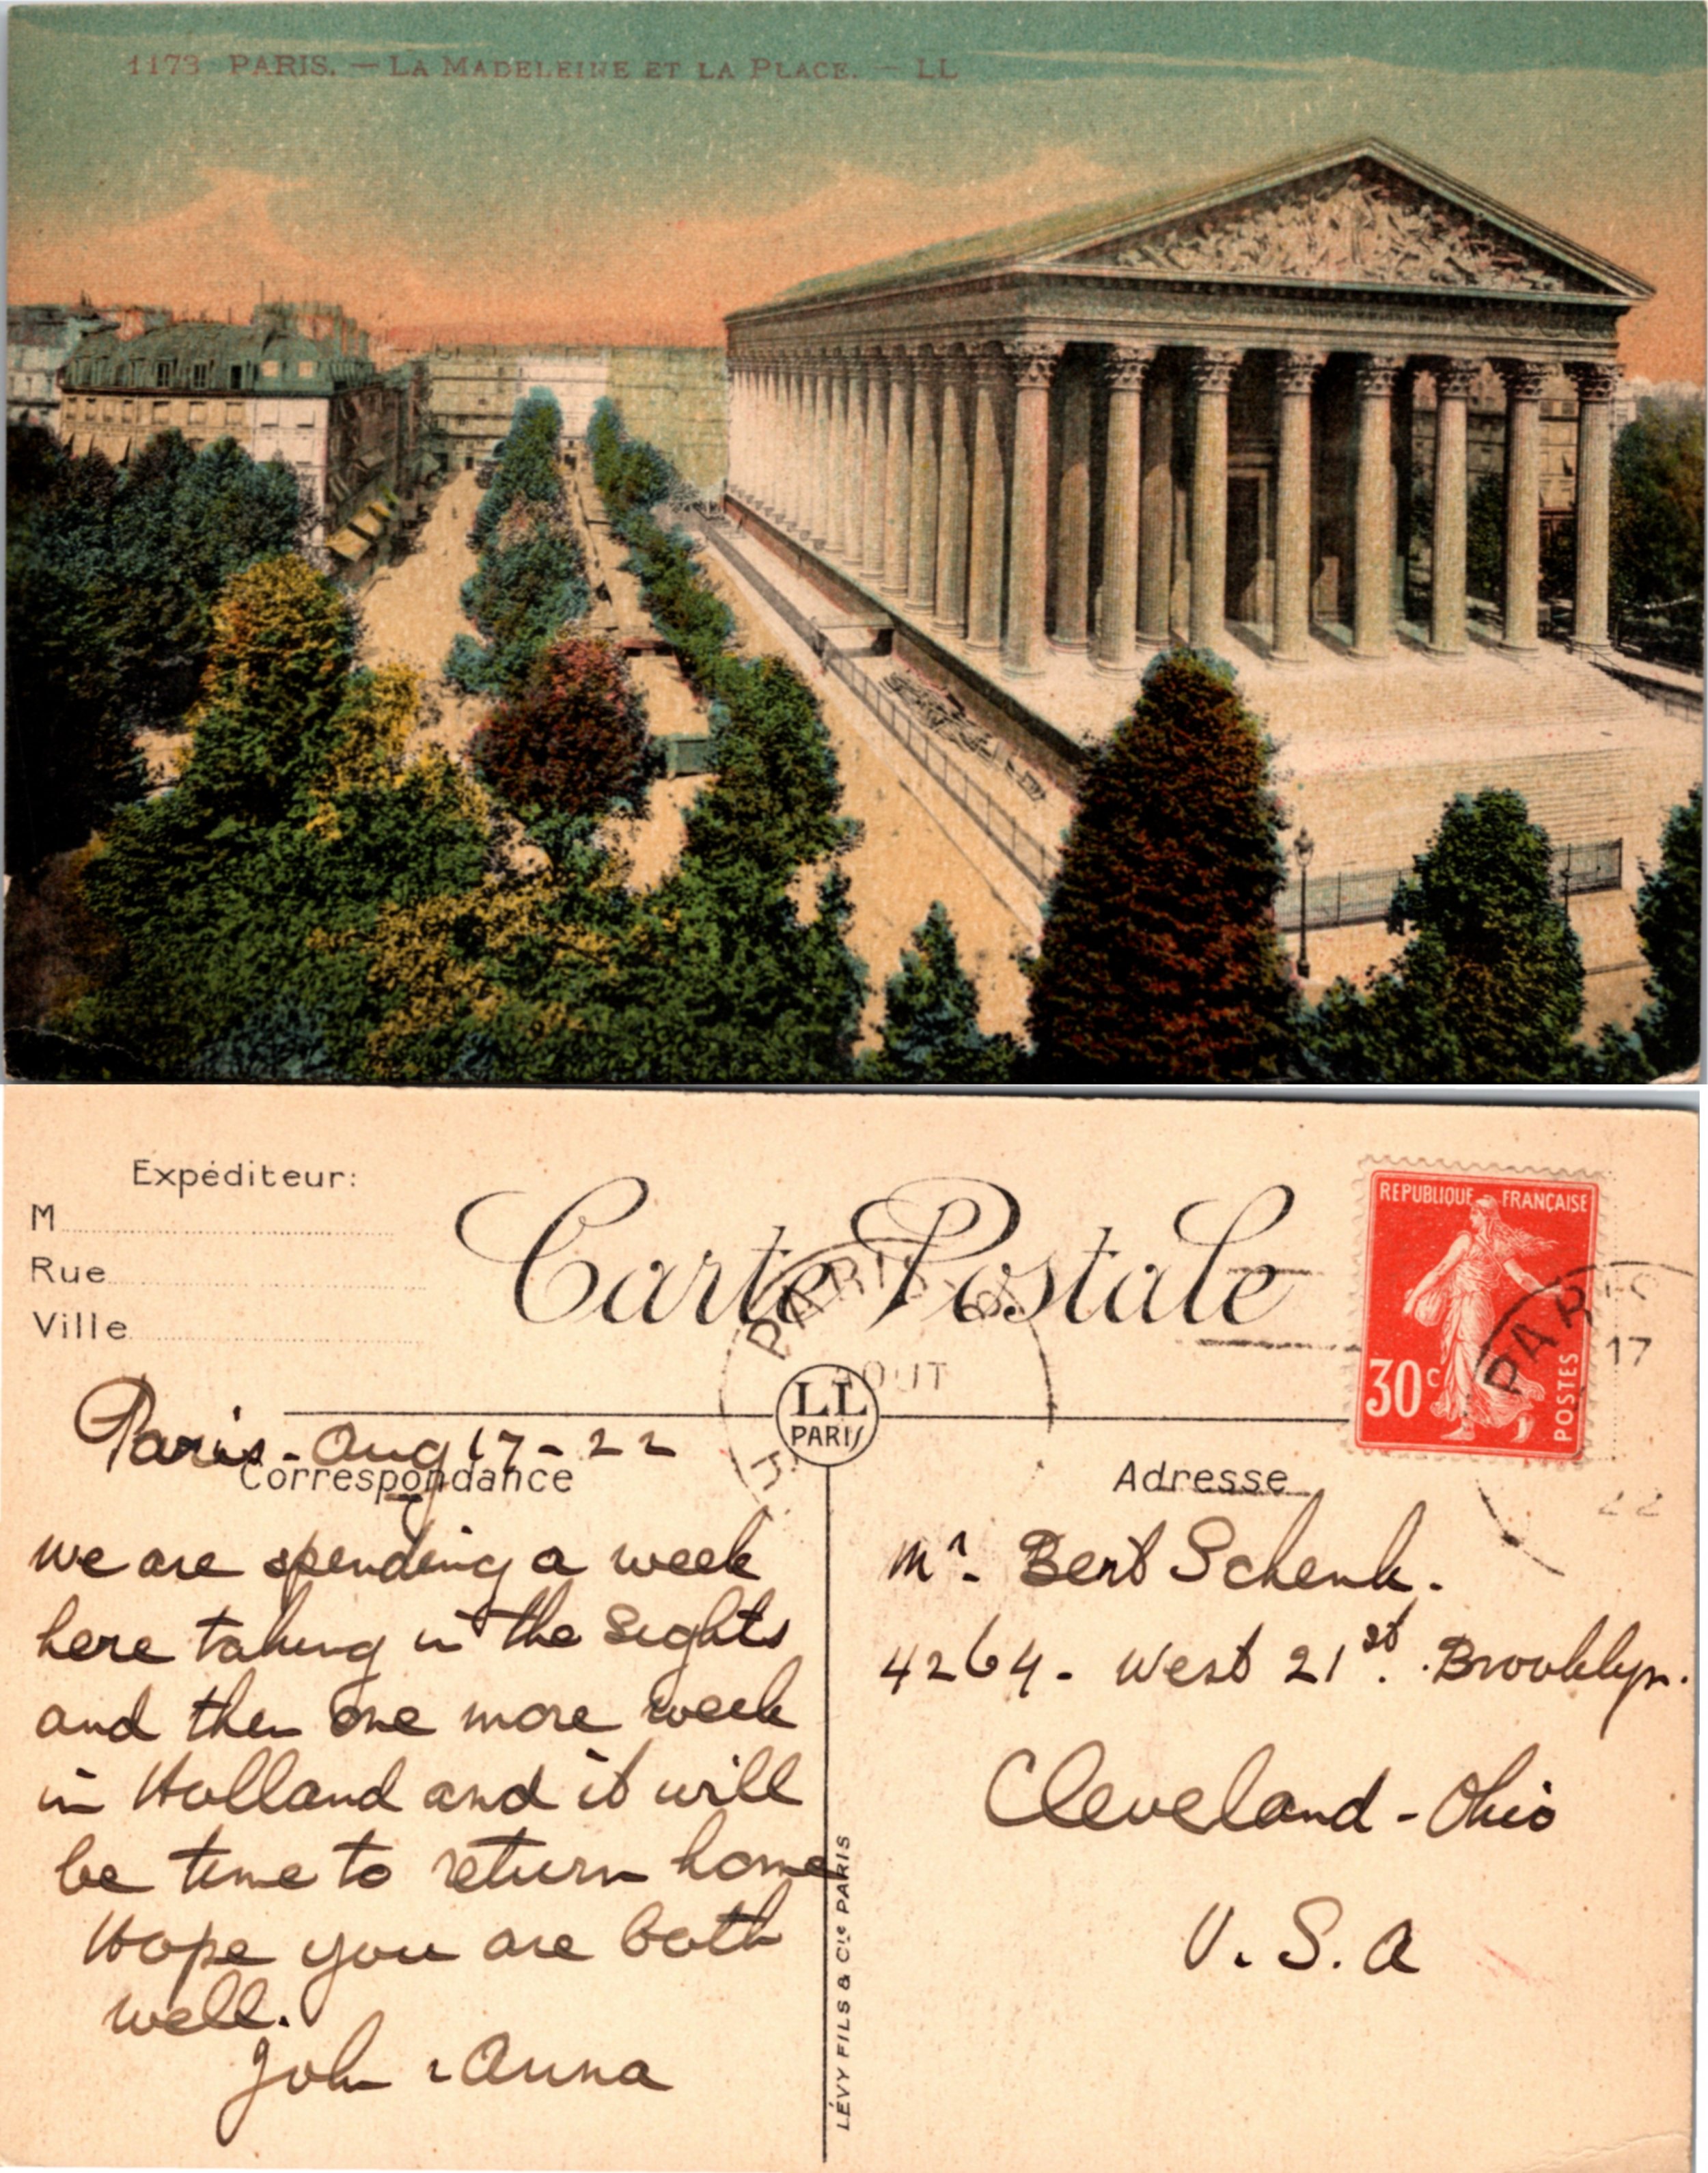 1173 PARIS. — LA MADELEINE ET LA PLACE. — LL
Expéditeur:
M
Rue
Ville
Carte Postale
REPUBLIQUE FRANÇAISE
30c
POSTES
PARIS
17
22
PARIS
AOUT
LL
PARIS
Correspondance
Adresse
Paris - Aug 17 - 22
we are spending a week
here taking in the sights
and then one more week
in Holland and it will
be time to return home
Hope you are both
well.
John & Anna
Mr. Bert Schenk.
4264 - West 21st. Brooklyn.
Cleveland - Ohio
U. S. A
LÉVY FILS & Cie PARIS